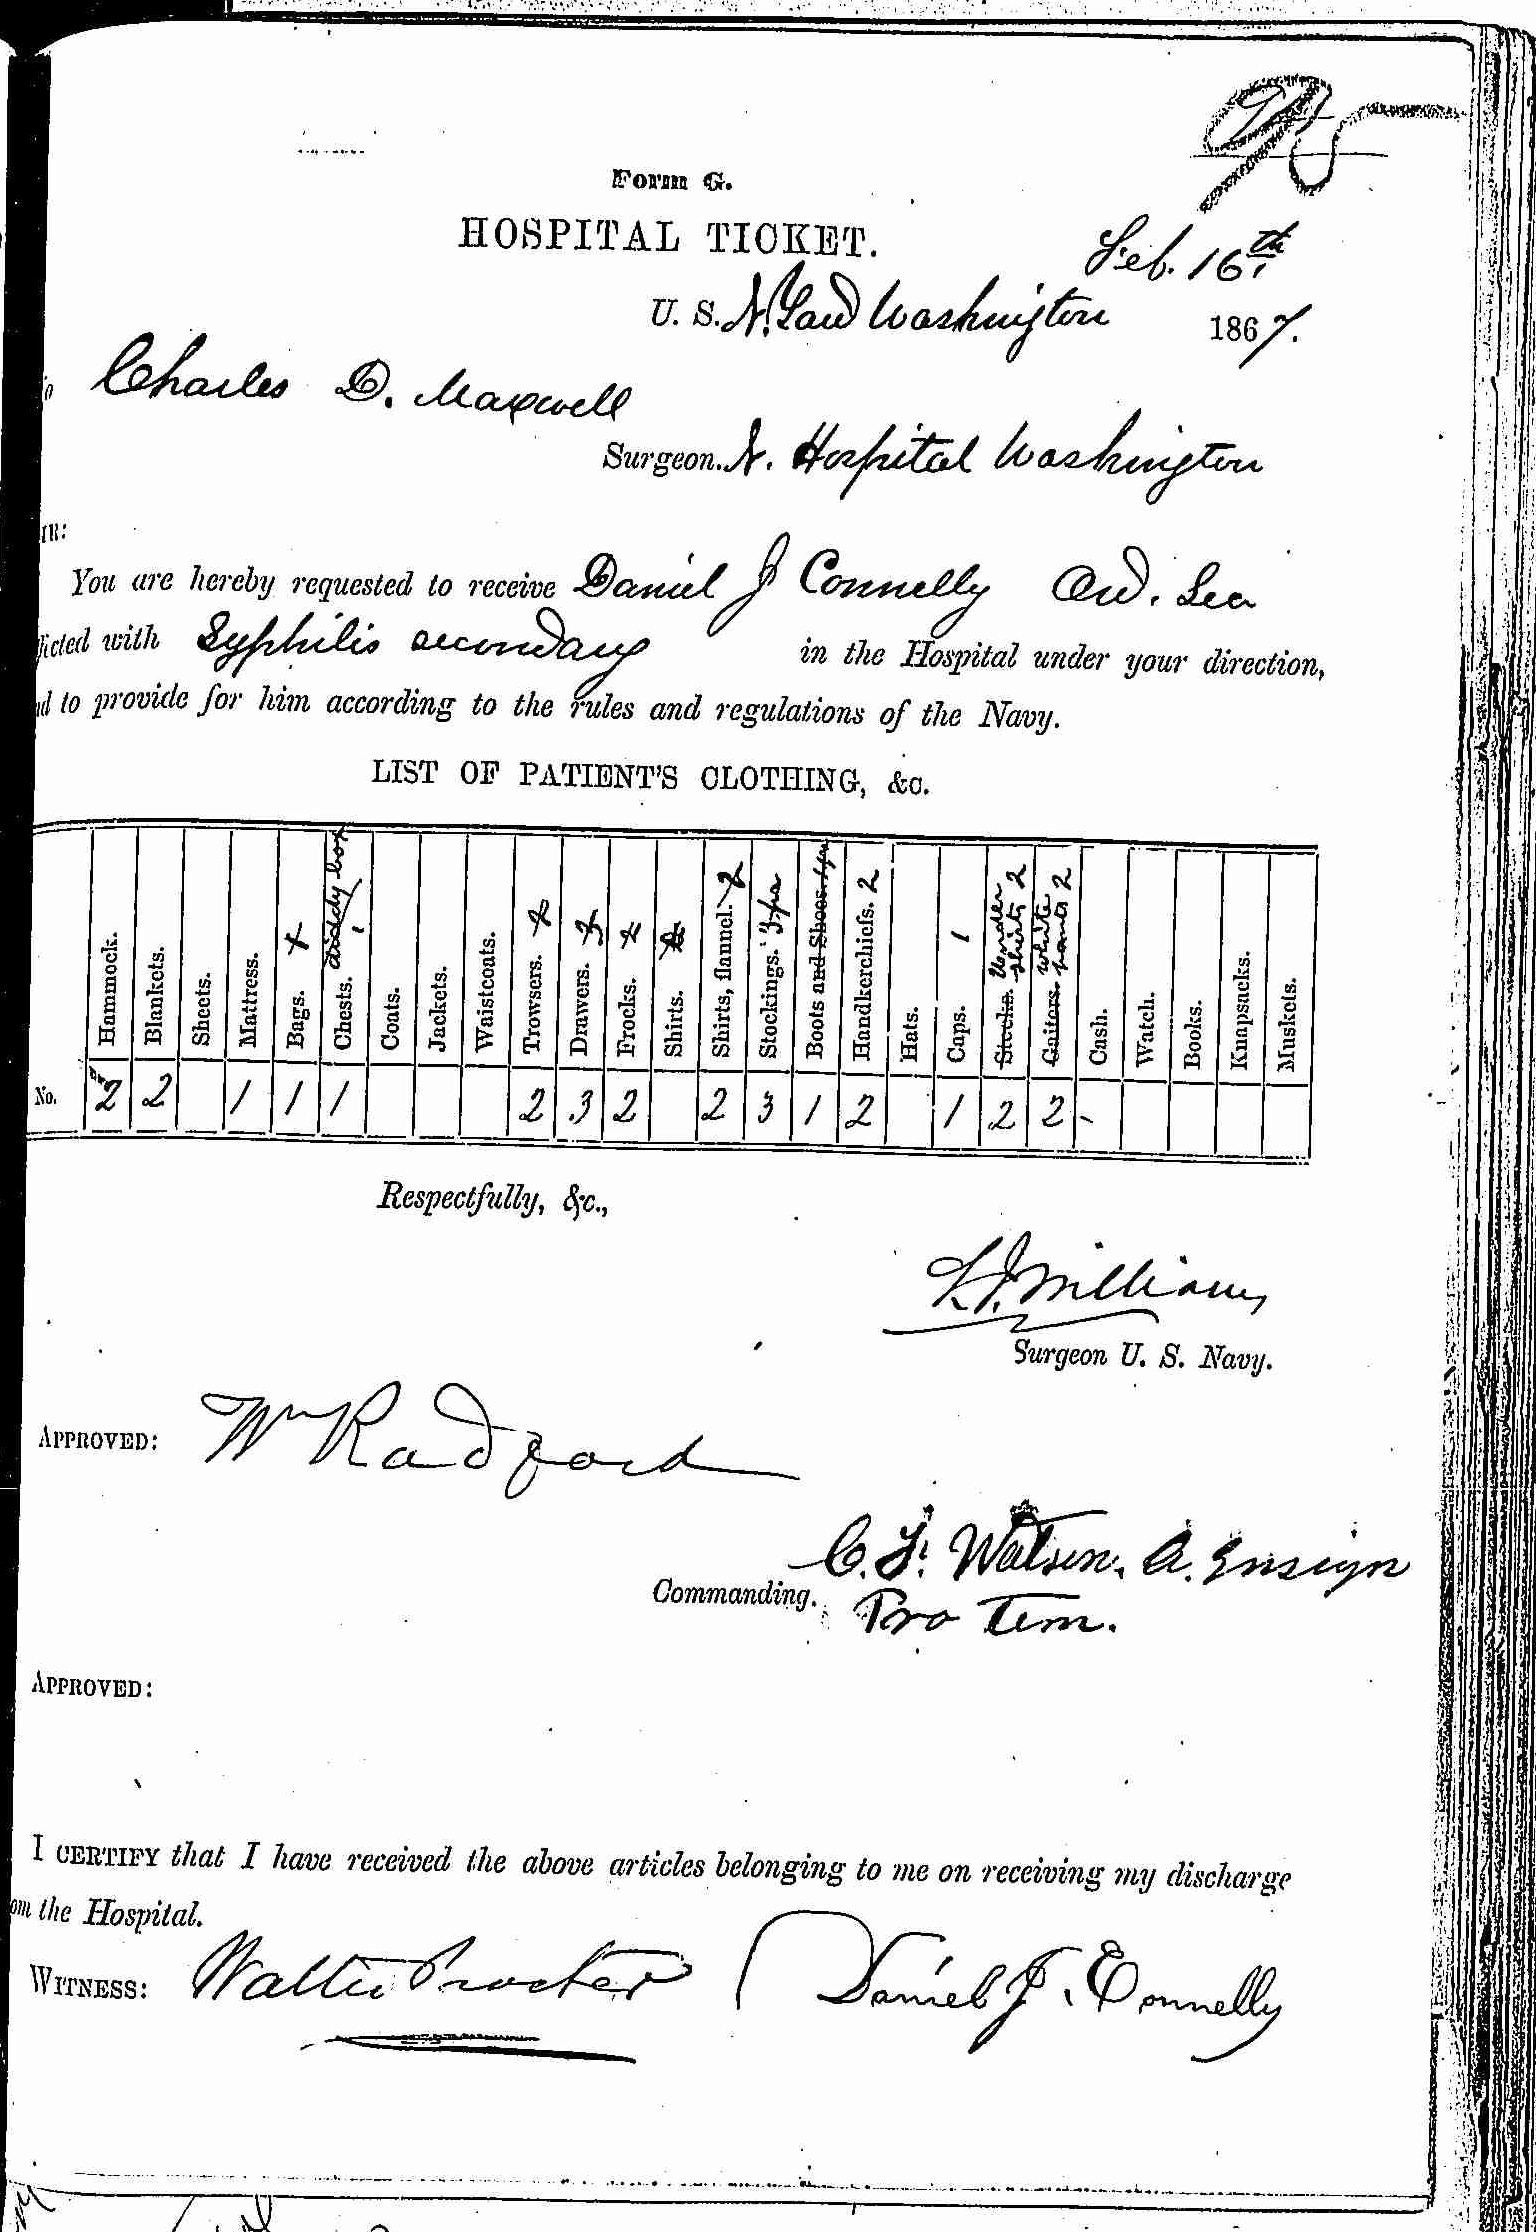 95
Form G.
HOSPITAL TICKET.
Feb. 16th
U. S. N. Yard Washington 1867.
Charles D. Maxwell
Surgeon. N. Hospital Washington
IR:
You are hereby requested to receive Daniel J Connelly Ord. Sea
icted with Syphilis secondary in the Hospital under your direction,
d to provide for him according to the rules and regulations of the Navy.
LIST OF PATIENT'S CLOTHING, &c.
Hammock. Blankets. Sheets. Mattress. Bags. Chests. diddy box 1 Coats. Jackets. Waistcoats. Trowsers. Drawers. Frocks. Shirts. Shirts, flannel. Stockings. 3 prs Boots and Shoes. 1 pr Handkerchiefs. 2 Hats. Caps. 1 Stocks. Under shirts 2 Gaiters. white pants 2 Cash. Watch. Books. Knapsacks. Muskets.
No. 2 2 1 1 1 2 3 2 2 3 1 2 1 2 2 -
Respectfully, &c.,
L. J. Williams
Surgeon U. S. Navy.
APPROVED: Wm Radford
C. F. Watson. A. Ensign
Commanding. Pro Tem.
APPROVED:
I CERTIFY that I have received the above articles belonging to me on receiving my discharge
om the Hospital.
WITNESS: Walter Procter Daniel J. Connelly